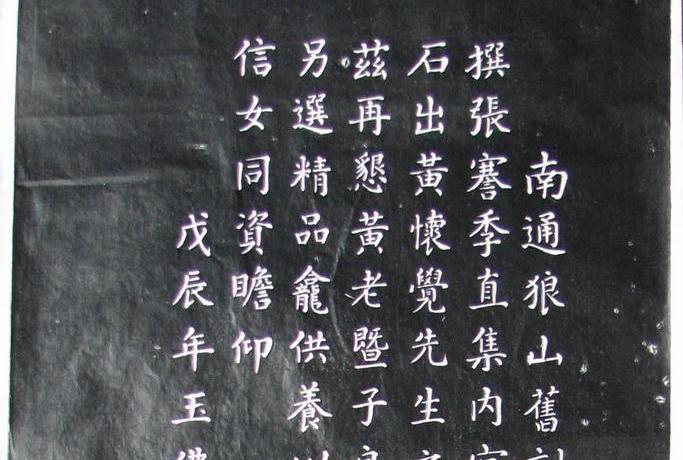 南通狼山舊刻
撰張謇季直集內
石出黃懷覺先生
茲再懇黃老暨子
另選精品龕供養
信女同資瞻仰
戊辰年玉佛